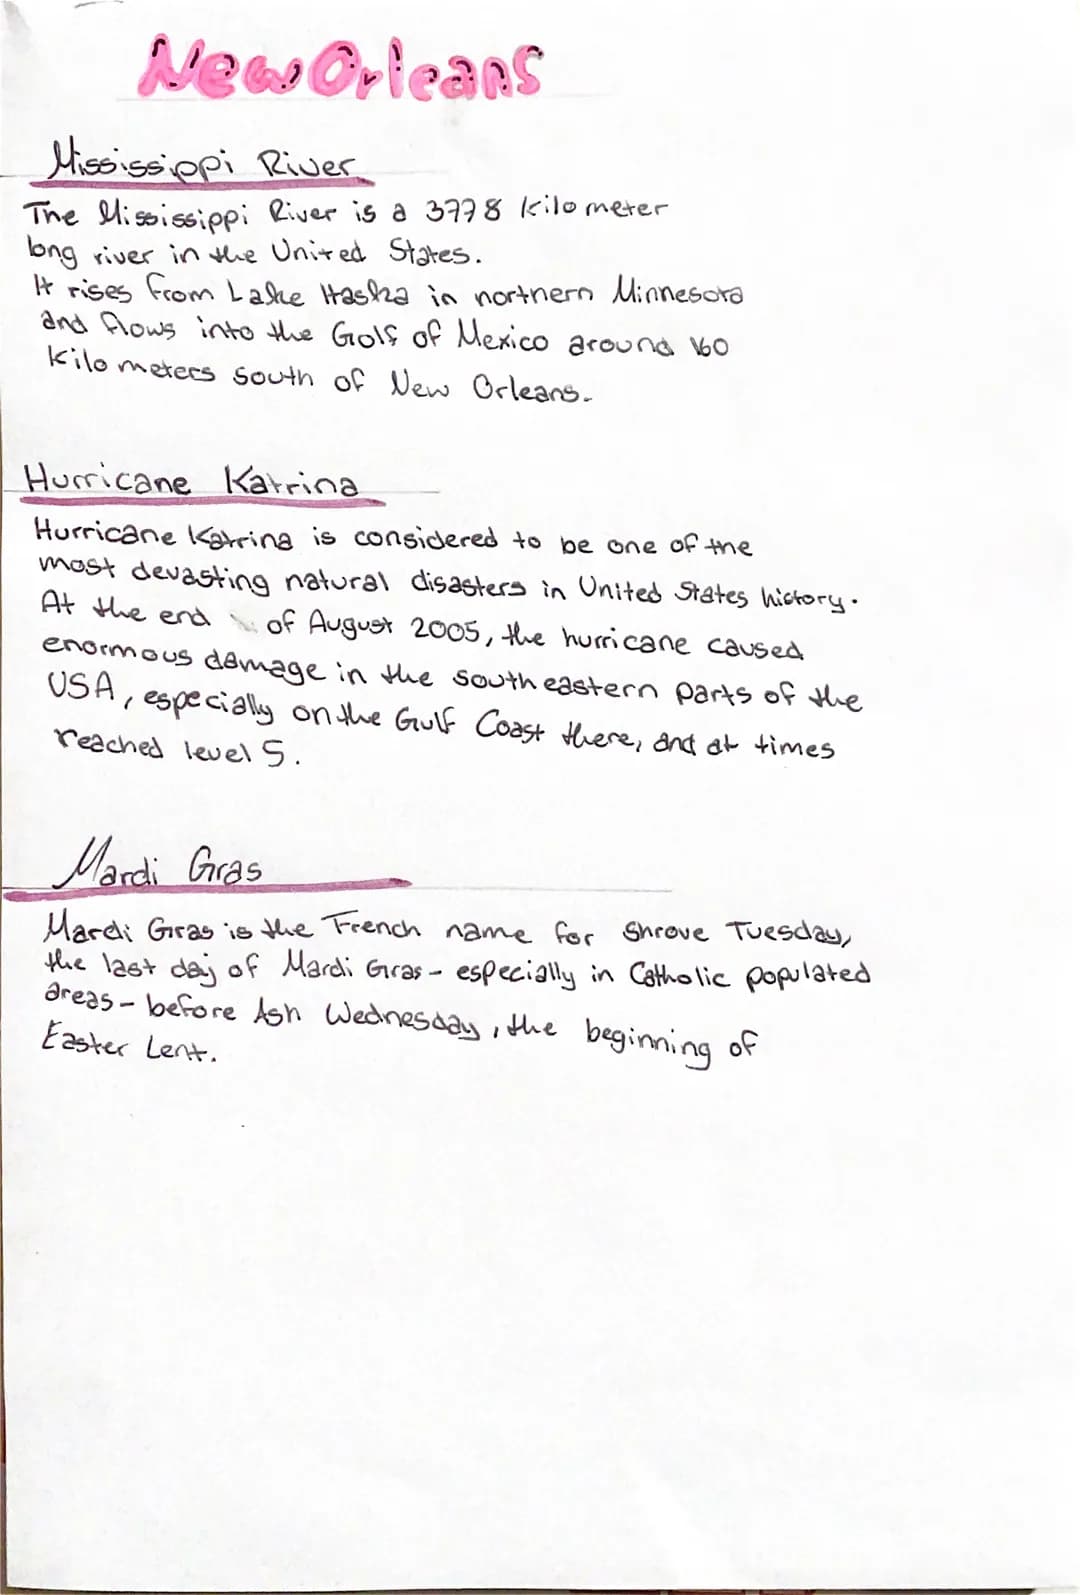 New Orleans
Mississippi River
The Mississippi River is a 3778 kilometer
long river in the United States.
It rises from Lake Itaska in northern Minnesota
and flows into the Golf of Mexico around 160
kilometers south of New Orleans.
Hurricane Katrina
Hurricane Katrina is considered to be one of the
most devasting natural disasters in United States history.
At the end of August 2005, the hurricane caused
enormous damage in the southeastern parts of the
USA, especially on the Gulf Coast there, and at times
reached level 5.
Mardi Gras
Mardi Gras is the French name for Shrove Tuesday,
the last day of Mardi Gras - especially in Catholic populated
areas - before Ash Wednesday, the beginning of
Easter Lent.